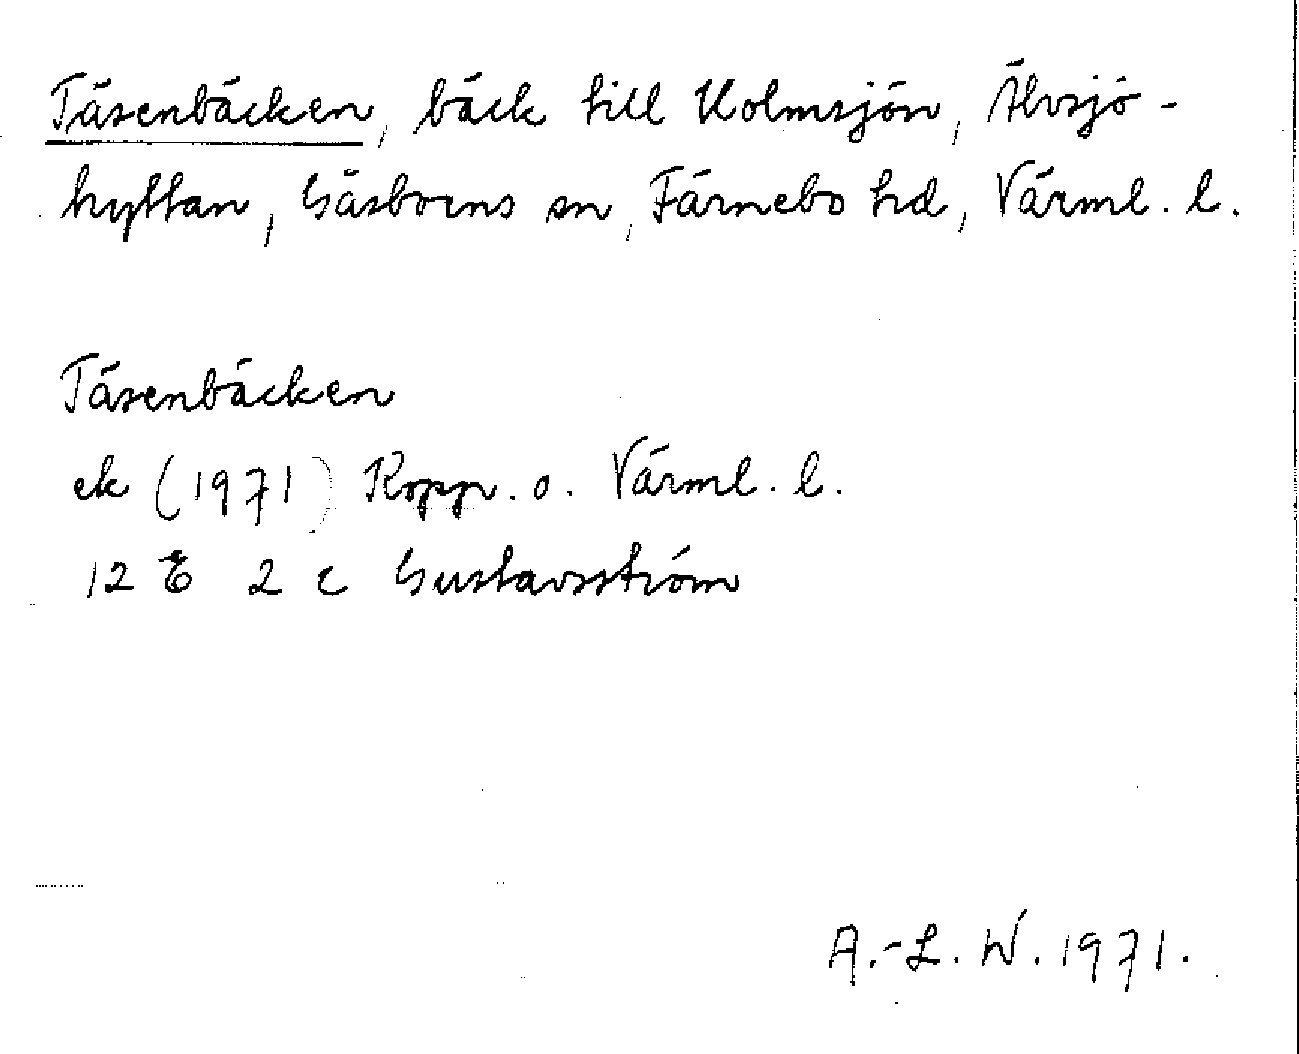 Täsenbäcken, bäck till Kolmsjön, Älvsjö-
hyttan, Gåsborns sn, Färnebo hd, Värml. l.
Täsenbäcken
ek (1971) Kopp. o. Värml. l.
12 E 2 c Gustavsström
A.-L. W. 1971.